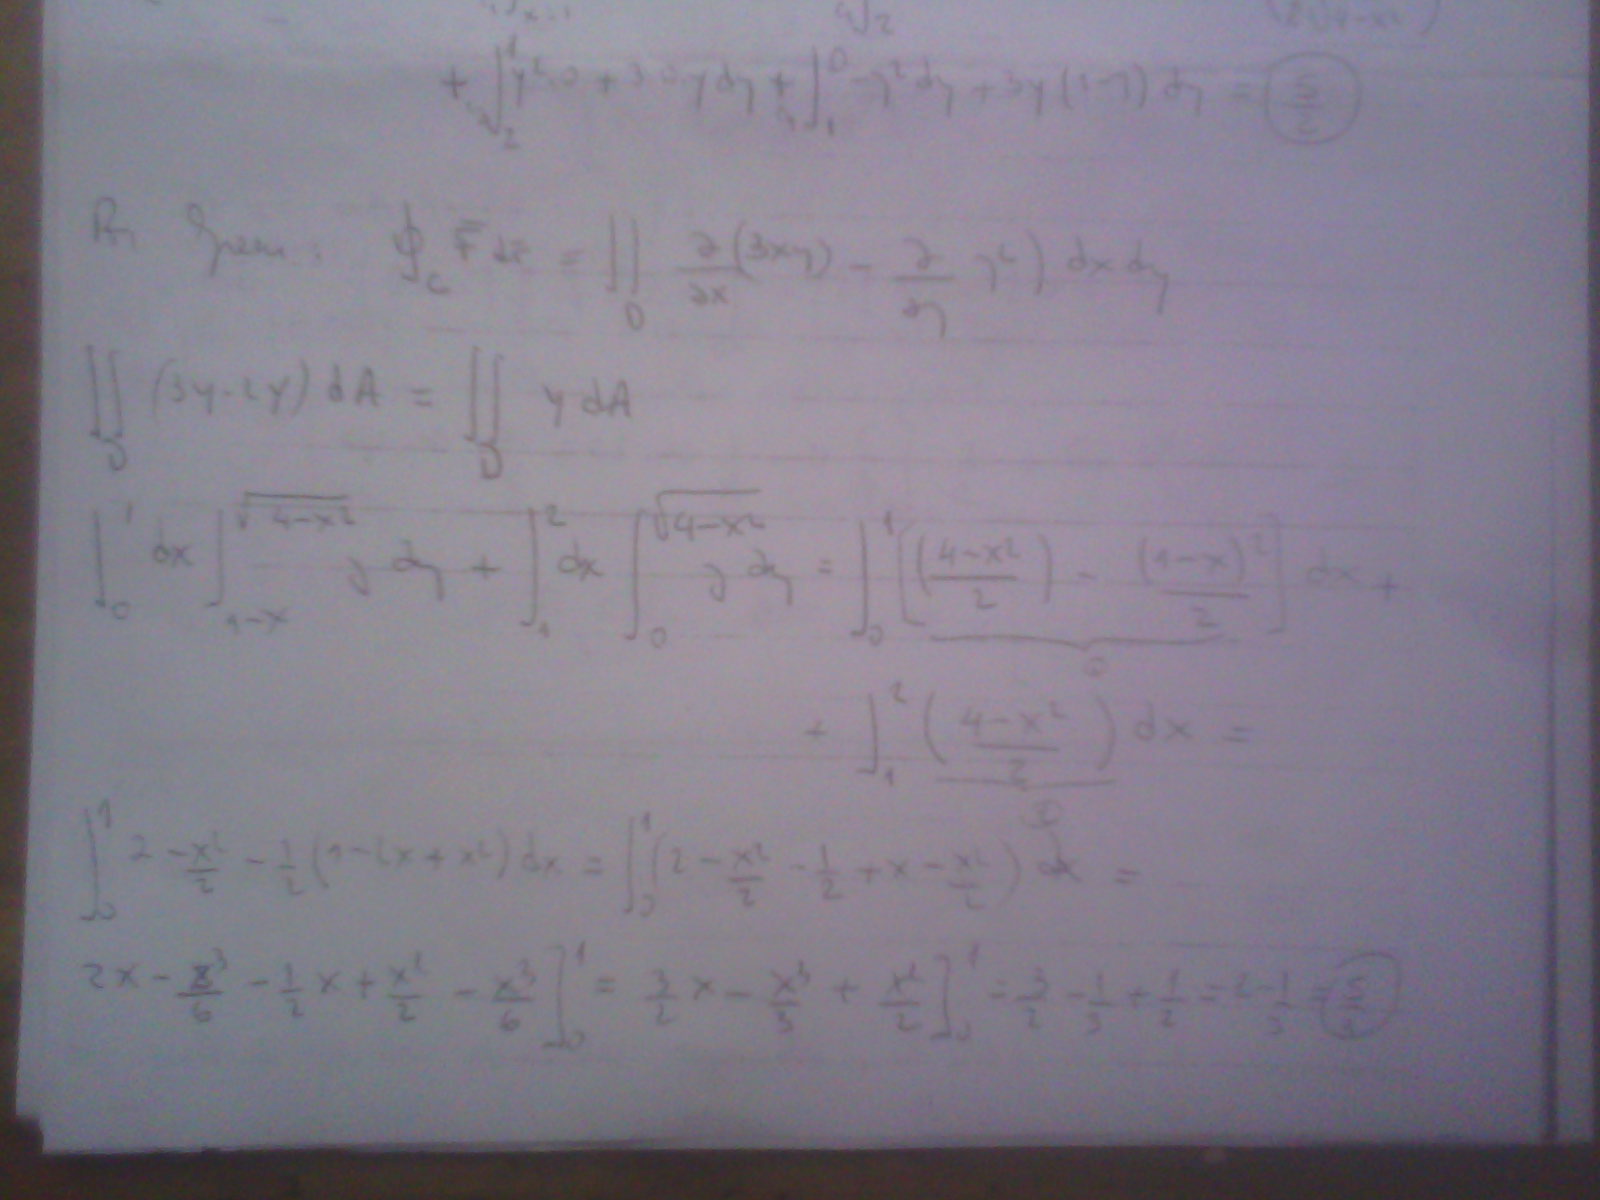 + ∫_2^1 y²·0 + 3·0·y dy + ∫_1^0 -y² dy + 3y(1-y) dy = 5/2
Por Green: ∮_C F̄ dr̄ = ∬_D ∂/∂x (3xy) - ∂/∂y y²) dx dy
∬_D (3y-2y) dA = ∬_D y dA
∫_0^1 dx ∫_{1-x}^{√(4-x²)} y dy + ∫_1^2 dx ∫_0^{√(4-x²)} y dy = ∫_0^1 [((4-x²)/2) - (1-x)²/2] dx +
+ ∫_1^2 ((4-x²)/2) dx =
∫_0^1 2 - x²/2 - 1/2 (1-2x+x²) dx = ∫_0^1 (2 - x²/2 - 1/2 + x - x²/2) dx =
2x - x³/6 - 1/2 x + x²/2 - x³/6 ]_0^1 = 3/2 x - x³/3 + x²/2 ]_0^1 = 3/2 - 1/3 + 1/2 = 2 - 1/3 =